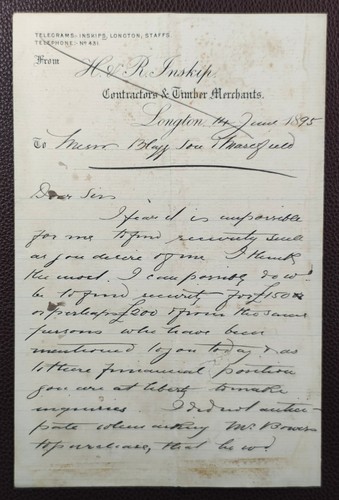 TELEGRAMS:- INSKIPS, LONGTON, STAFFS.
TELEPHONE:- No 451.
From H. & R. Inskip,
Contractors & Timber Merchants.
Longton, 14 June 1895
To Messrs Blagg Son & Masefield
Dear Sirs
I fear it is impossible
for me to find security such
as you desire of me. I think
the most I can possibly do wd
be to find security for £150
or perhaps £200 from the same
persons who have been
mentioned to you today & as
to there financial position
you are at liberty to make
inquiries I did not antici-
pate when asking Mr Bowers
to purchase, that he wd